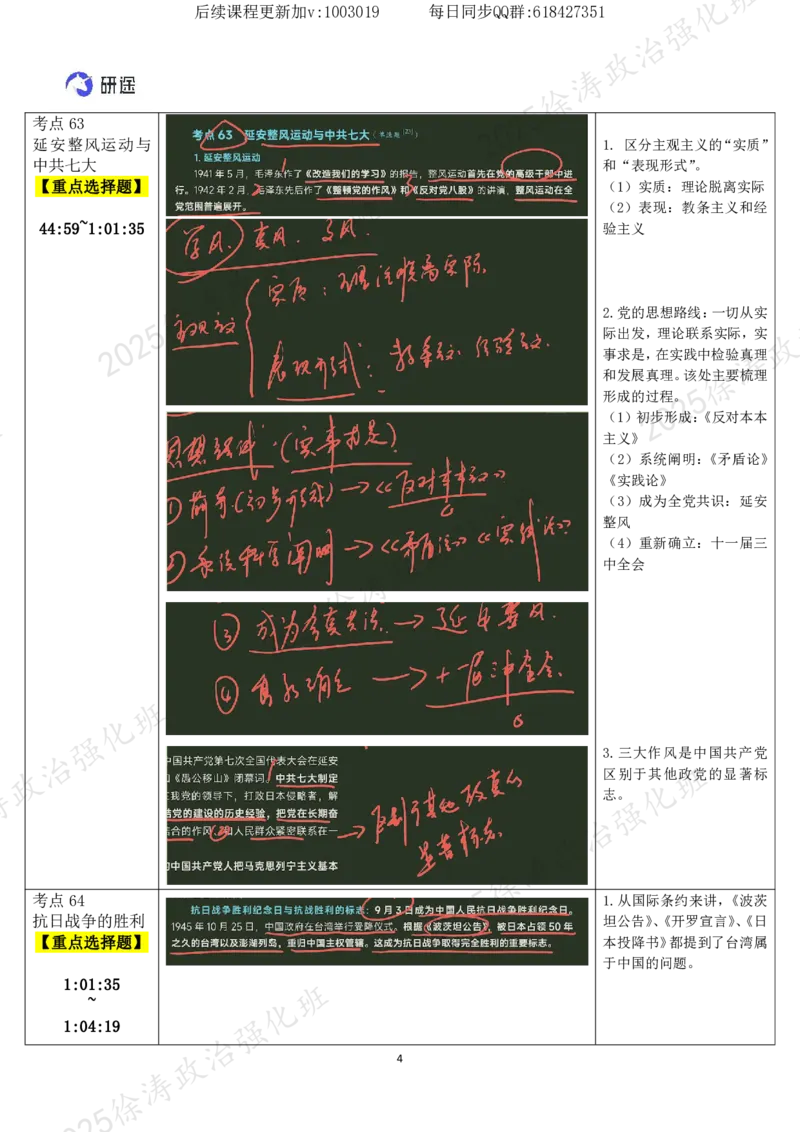 后续课程更新加v:1003019 每日同步QQ群:618427351
研途
考点 63
延安整风运动与
中共七大
【重点选择题】
44:59~1:01:35
考点 63 延安整风运动与中共七大
1. 延安整风运动
1941 年 5 月,毛泽东作了《改造我们的学习》的报告,整风运动首先在党的高级干部中进
行。1942 年 2 月,毛泽东先后作了《整顿党的作风》和《反对党八股》的讲演,整风运动在全
党范围普遍展开。
学风. 党风. 文风.
主观主义
实质:理论脱离实际
表现形式:教条主义. 经验主义.
思想路线.(实事求是)
①前奏(初步形成)→《反对本本主义》
②系统科学阐明→《矛盾论》《实践论》
③ 成为全党共识. → 延安整风.
④ 重新确立 → 十一届三中全会.
中国共产党第七次全国代表大会在延安
《愚公移山》闭幕词。中共七大制定
在我党的领导下,打败日本侵略者,解
结党的建设的历史经验,把党在长期奋
结合的作风、和人民群众紧密联系在一
的中国共产党人把马克思列宁主义基本
→ 区别于其他政党的
显著标志.
1. 区分主观主义的“实质”
和“表现形式”。
(1)实质:理论脱离实际
(2)表现:教条主义和经
验主义
2.党的思想路线:一切从实
际出发,理论联系实际,实
事求是,在实践中检验真理
和发展真理。该处主要梳理
形成的过程。
(1)初步形成:《反对本本
主义》
(2)系统阐明:《矛盾论》
《实践论》
(3)成为全党共识:延安
整风
(4)重新确立:十一届三
中全会
3.三大作风是中国共产党
区别于其他政党的显著标
志。
考点 64
抗日战争的胜利
【重点选择题】
1:01:35
~
1:04:19
抗日战争胜利纪念日与抗战胜利的标志:9 月 3 日成为中国人民抗日战争胜利纪念日。
1945 年 10 月 25 日,中国政府在台湾举行受降仪式。根据《波茨坦公告》,被日本占领 50 年
之久的台湾以及澎湖列岛,重归中国主权管辖。这成为抗日战争取得完全胜利的重要标志。
1.从国际条约来讲,《波茨
坦公告》、《开罗宣言》、《日
本投降书》都提到了台湾属
于中国的问题。
4
2025徐涛政治强化班